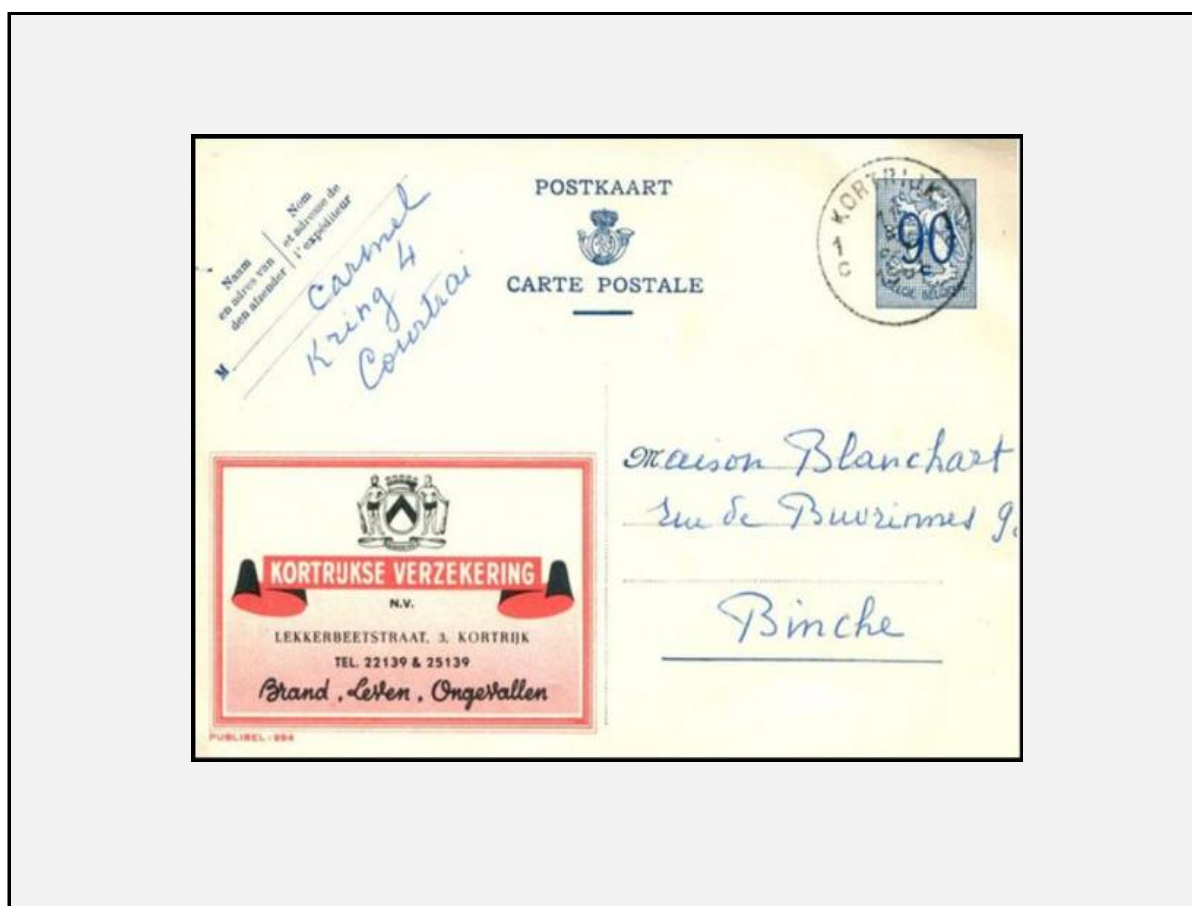 Naam
en adres van
den afzender
Nom
et adresse de
l'expéditeur
M
Carmel
Kring 4
Courtrai
POSTKAART
CARTE POSTALE
KORTRIJK
1
C
90
c
BELGIE BELGIQUE
Maison Blanchart
rue de
Binche
KORTRIJKSE VERZEKERING
N.V.
LEKKERBEETSTRAAT, 3, KORTRIJK
TEL. 22139 & 25139
Brand, Leven, Ongevallen
PUBLIBEL: 994